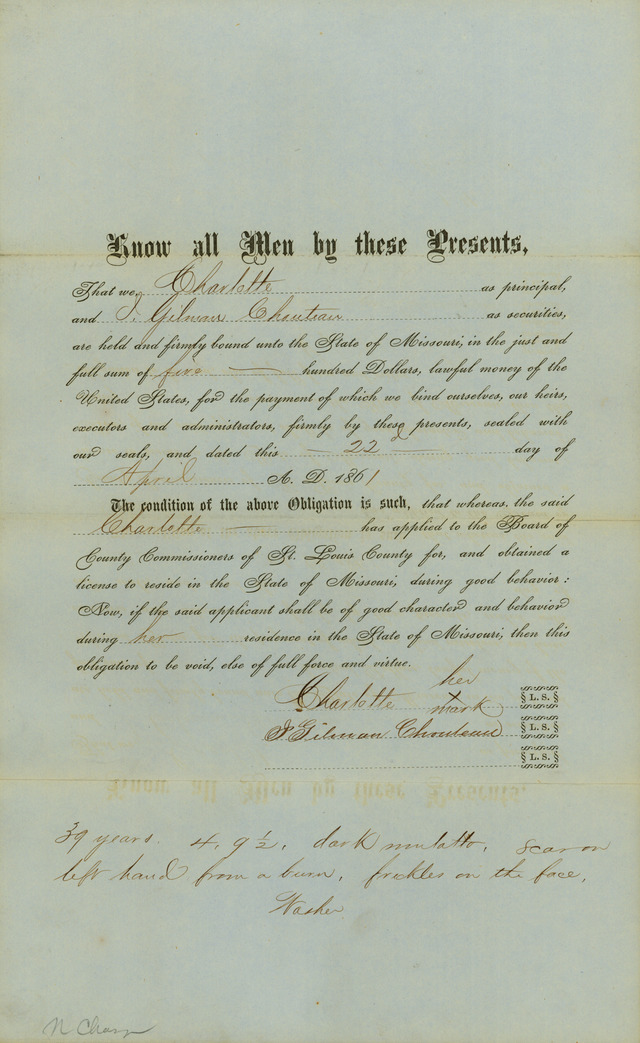 Know all Men by these Presents,
That we, Charlotte as principal,
and J. Gilman Chouteau as securities,
are held and firmly bound unto the State of Missouri, in the just and
full sum of five hundred Dollars, lawful money of the
United States, for the payment of which we bind ourselves, our heirs,
executors and administrators, firmly by these presents, sealed with
our seals, and dated this 22d day of
April A. D. 1861
The condition of the above Obligation is such, that whereas the said
Charlotte has applied to the Board of
County Commissioners of St. Louis County for, and obtained a
license to reside in the State of Missouri, during good behavior:
Now, if the said applicant shall be of good character and behavior
during her residence in the State of Missouri, then this
obligation to be void, else of full force and virtue.
Charlotte her x mark L. S.
J Gilman Chouteau L. S.
L. S.
39 years. 4. 9 ½, dark mulatto, scar on
left hand from a burn, frickles on the face,
Washer